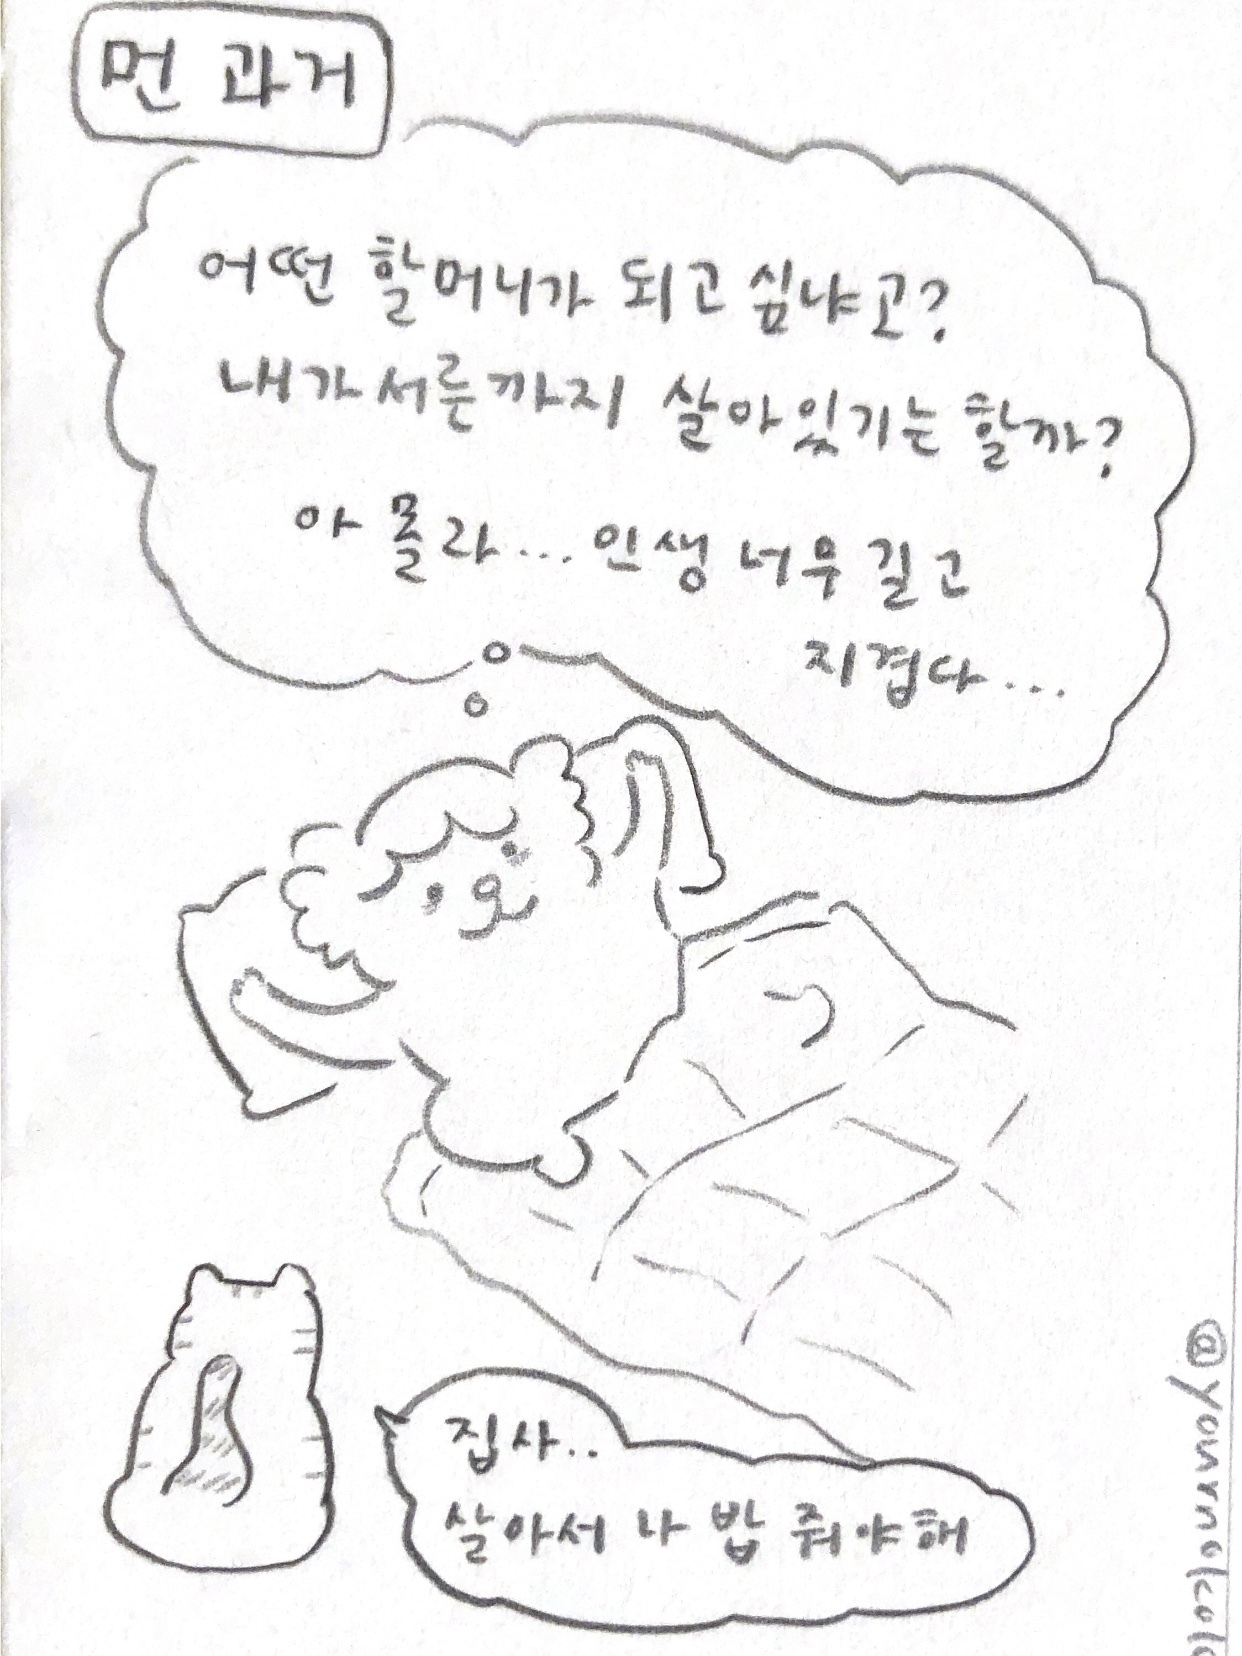 먼 과거
어떤 할머니가 되고 싶냐고?
내가 서른까지 살아있기는 할까?
아 몰라... 인생 너무 길고
지겹다...
집사..
살아서 나 밥 줘야해